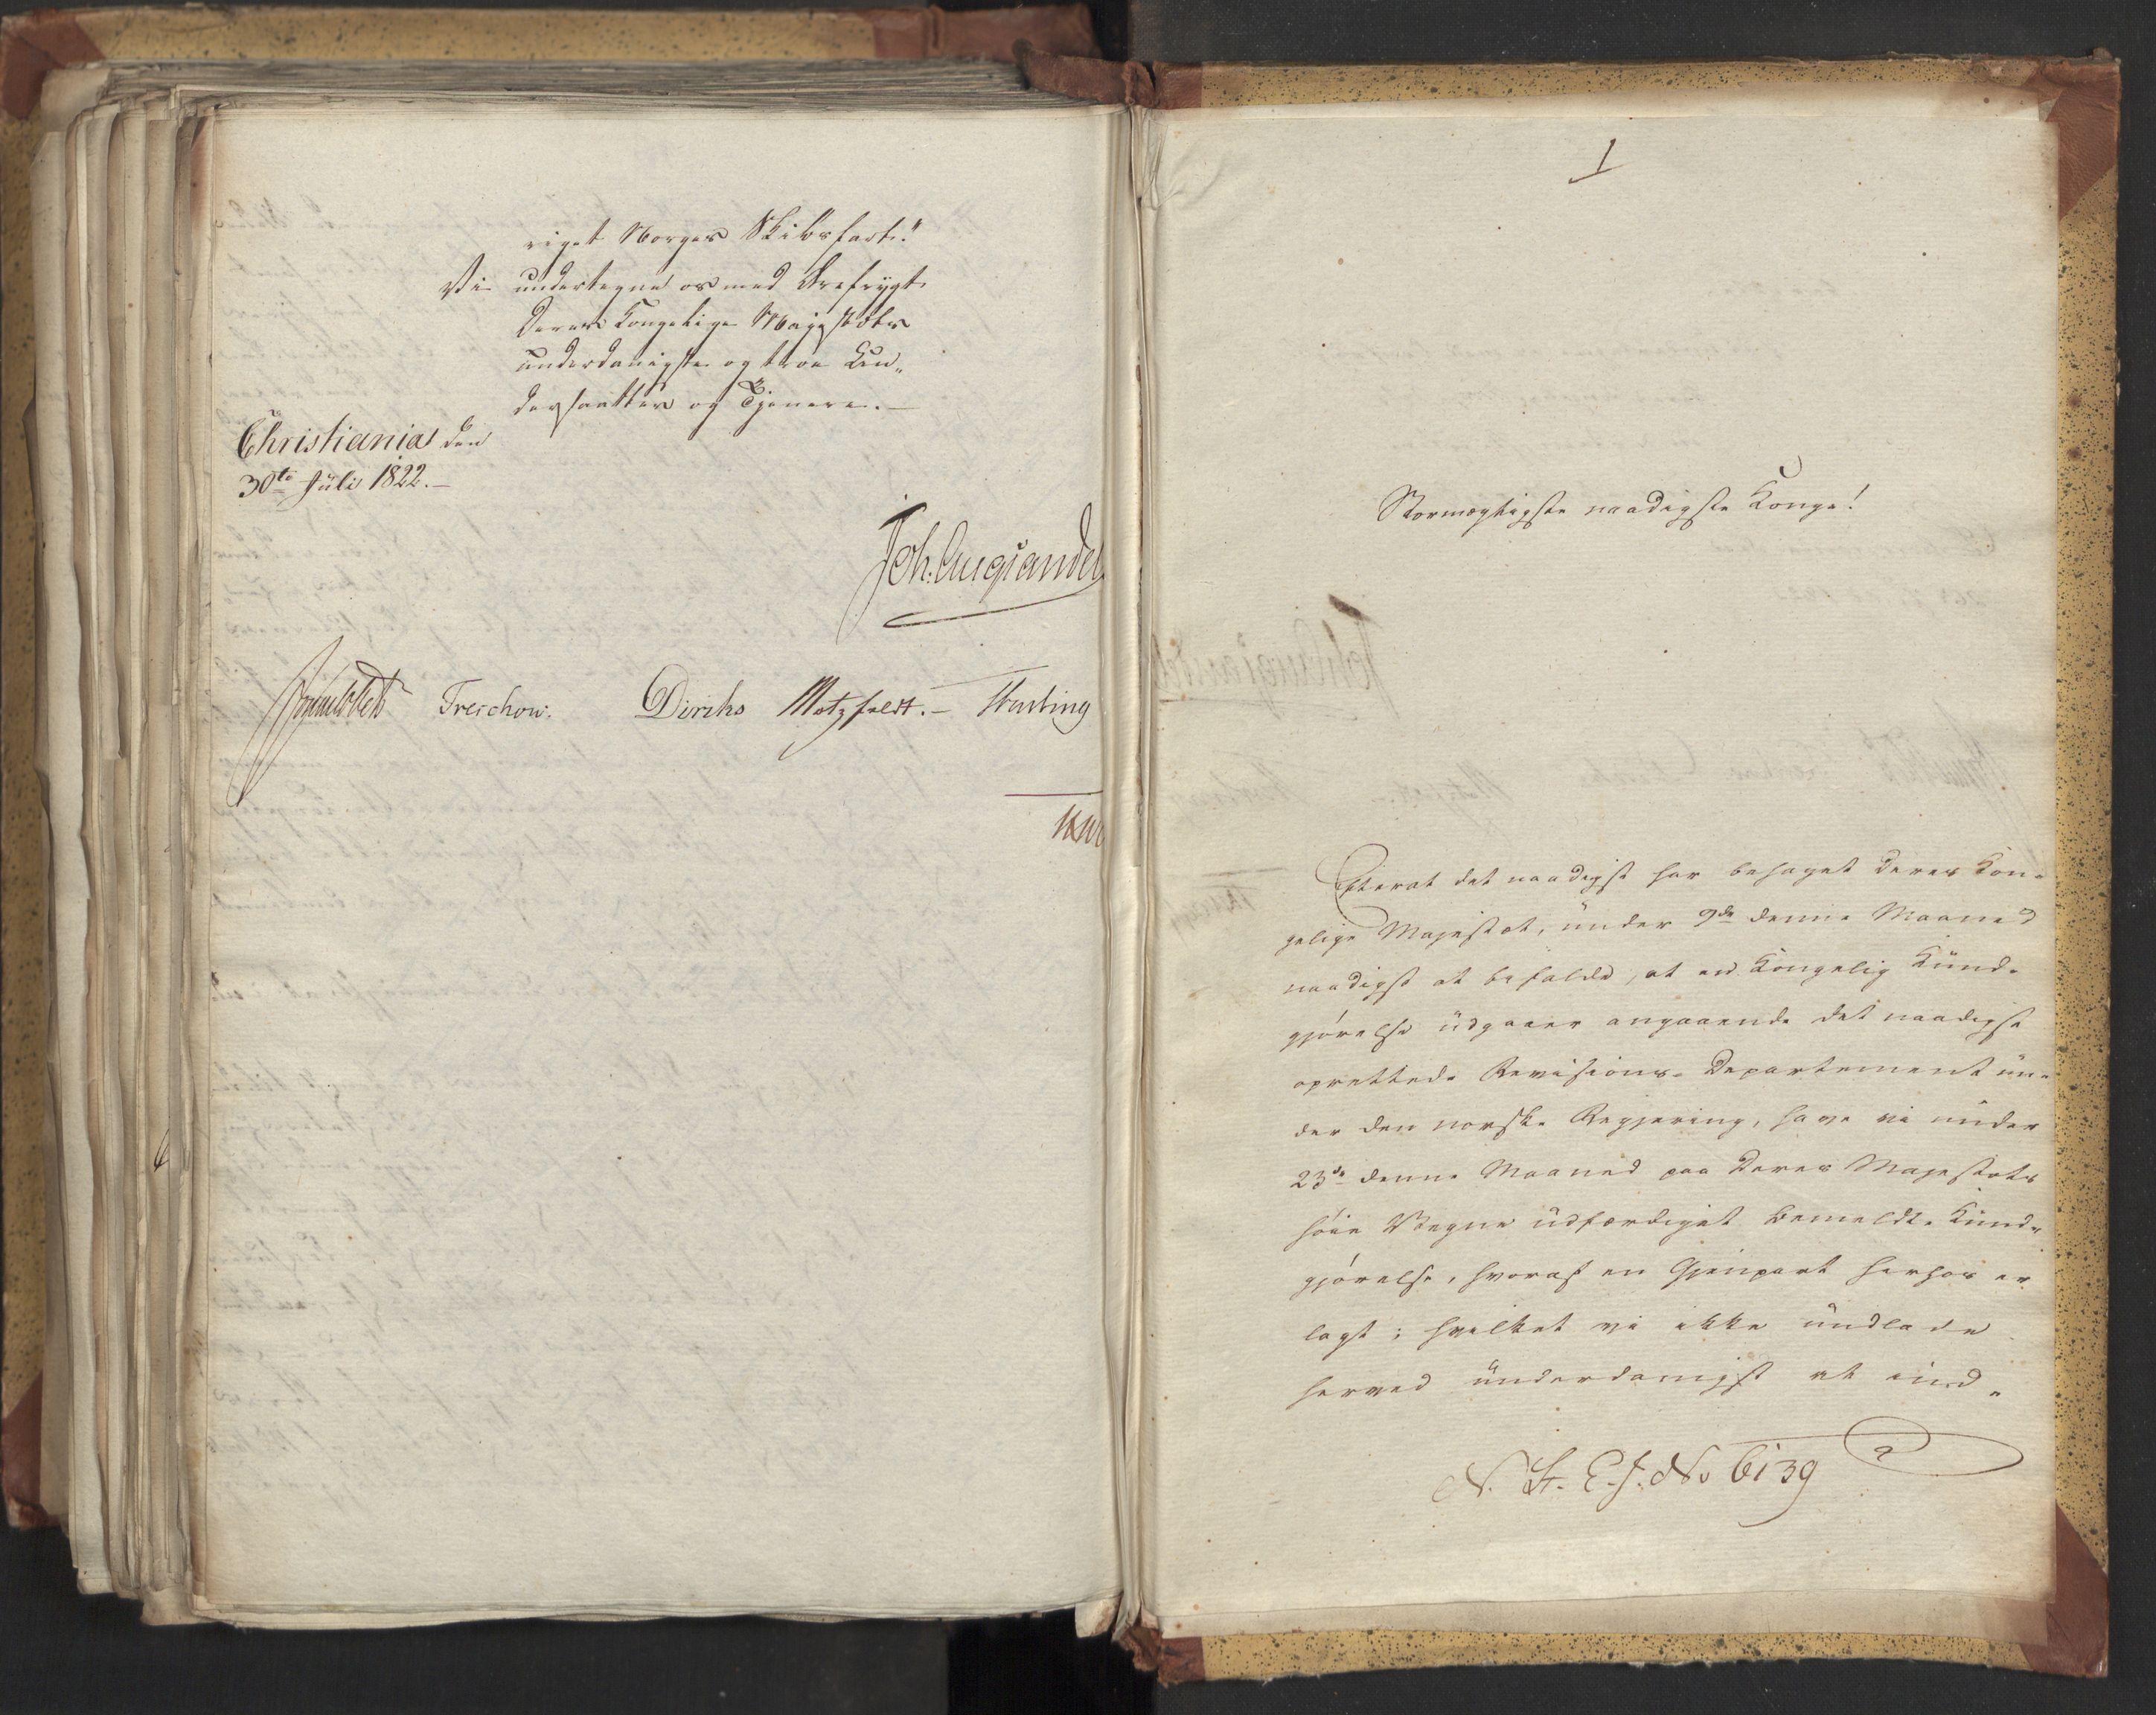 riget Norges Skibsfart."
Vi undertegne os med Ærefrygt
Deres Kongelige Majestæts
underdanigste og troe Un„
dersaatter og Tjenere.—
Christiania den
30te Juli 1822.—
Joh. Aug Sandel
Sommerhielm Treschow. Diriks Motzfeldt.— Fasting
1
Stormægtigste naadigste Konge!
Efterat det naadigst har behaget Deres Kon-
gelige Majestæt, under 9de denne Maaned
naadigst at befalde, at en Kongelig Kund-
gjørelse udgaaer angaaende det naadigst
oprettede Revisions-Departement un-
der den norske Regjering, have vi under
23de denne Maaned paa Deres Majestæts
høie Vegne udfærdiget bemeldte Kund-
gjørelse, hvoraf en Gjenpart herhos er
lagt; hvilket vi ikke undlade
herved underdanigst at ind„
N. St. E. J. No 6139